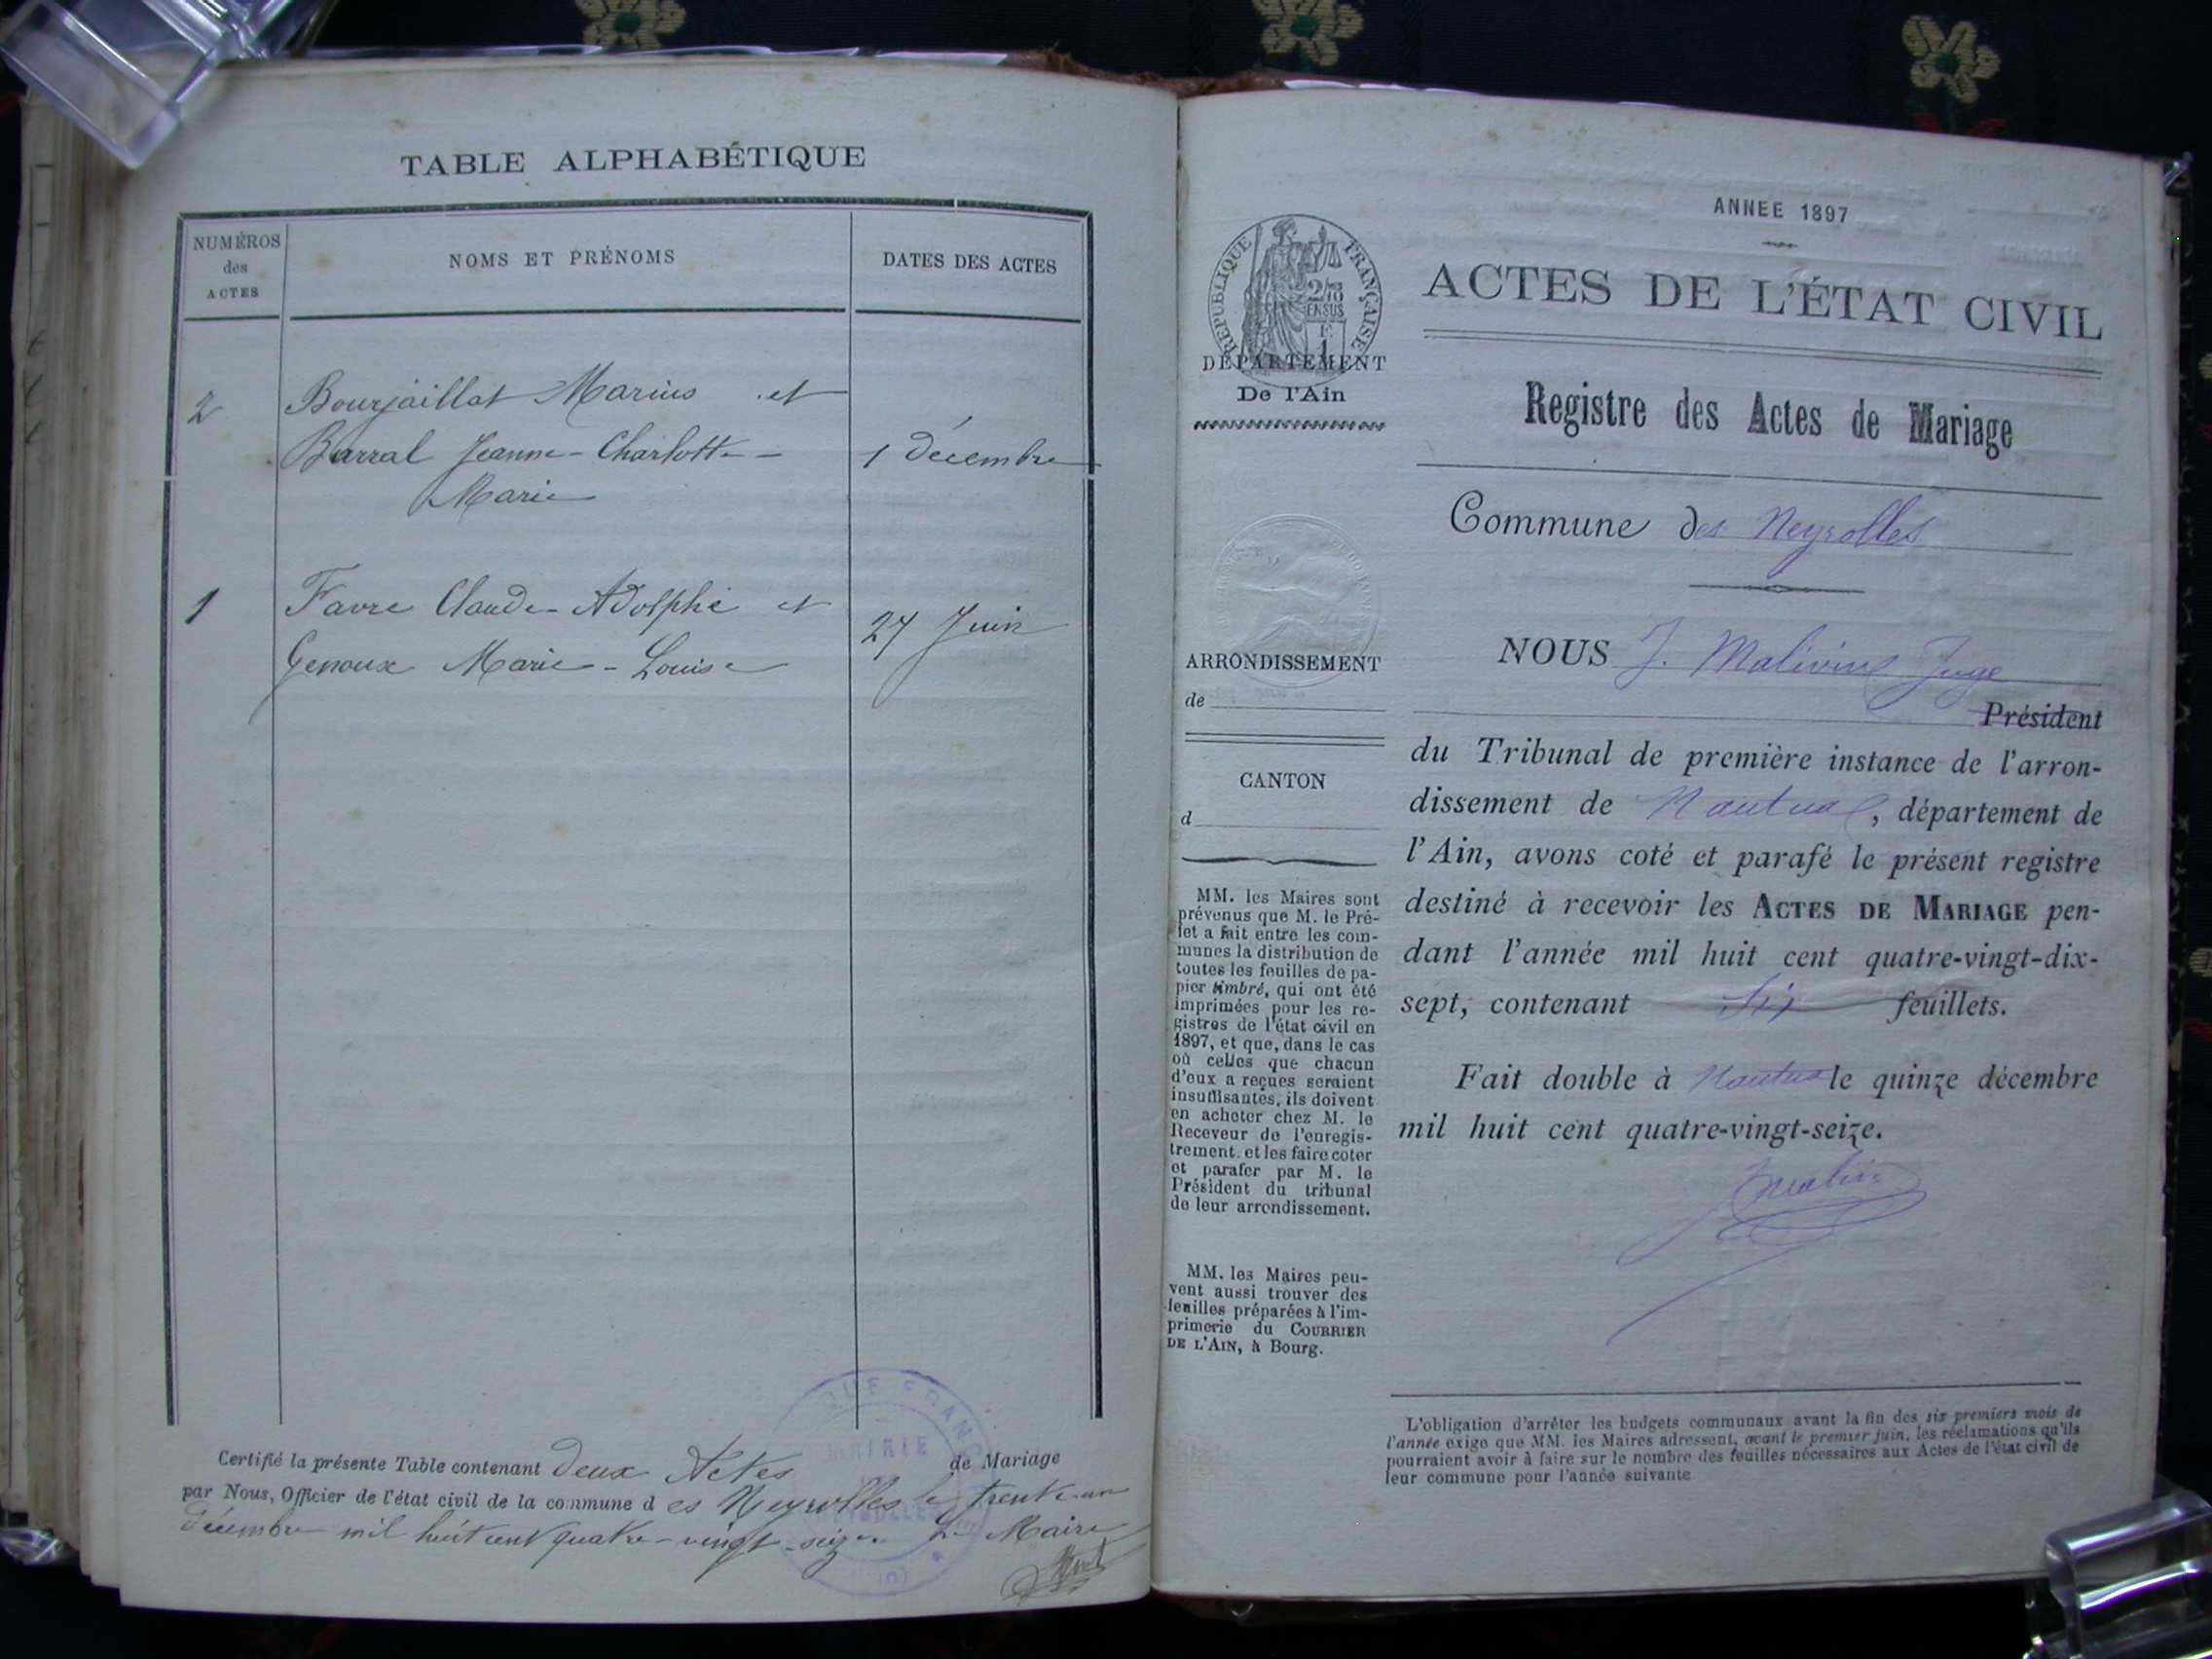 TABLE ALPHABÉTIQUE
NUMÉROS
des
ACTES
NOMS ET PRÉNOMS
DATES DES ACTES
2 Bourjaillat Marius et
Barral Jeanne-Charlotte- 1 Décembre
Marie
1 Favre Claude-Adolphe et
27 Juin
Genoux Marie-Louise
Certifié la présente Table contenant deux Actes de Mariage
par Nous, Officier de l'état civil de la commune des Neyrolles le trente-un
décembre mil huit cent quatre-vingt-seize. Le Maire
MAIRIE
ANNEE 1897
ACTES DE L'ÉTAT CIVIL
RÉPUBLIQUE FRANÇAISE
2/10
EN SUS
DÉPARTEMENT
De l'Ain
Registre des Actes de Mariage
Commune des Neyrolles
ARRONDISSEMENT
de
CANTON
d
MM. les Maires sont
prévenus que M. le Pré-
fet a fait entre les com-
munes la distribution de
toutes les feuilles de pa-
pier timbré, qui ont été
imprimées pour les re-
gistres de l'état civil en
1897, et que, dans le cas
où celles que chacun
d'eux a reçues seraient
insuffisantes, ils doivent
en acheter chez M. le
Receveur de l'enregis-
trement. et les faire coter
et parafer par M. le
Président du tribunal
de leur arrondissement.
MM. les Maires peu-
vent aussi trouver des
feuilles préparées à l'im-
primerie du COURRIER
DE L'AIN, à Bourg.
NOUS J. Malivin Juge
Président
du Tribunal de première instance de l'arron-
dissement de Nantua, département de
l'Ain, avons coté et parafé le présent registre
destiné à recevoir les ACTES DE MARIAGE pen-
dant l'année mil huit cent quatre-vingt-dix-
sept, contenant Six feuillets.
Fait double à Nantua le quinze décembre
mil huit cent quatre-vingt-seize.
L'obligation d'arrêter les budgets communaux avant la fin des six premiers mois de
l'année exige que MM. les Maires adressent, avant le premier juin, les réclamations qu'ils
pourraient avoir à faire sur le nombre des feuilles nécessaires aux Actes de l'état civil de
leur commune pour l'année suivante